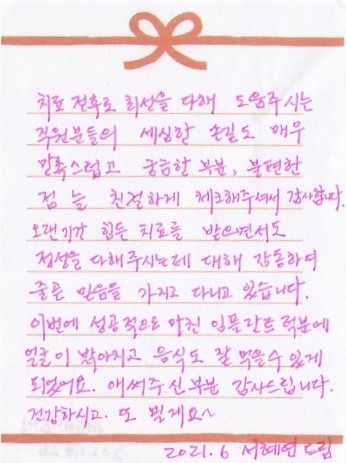 치료 전후로 최선을 다해 도움주시는
직원분들의 세심한 손길도 매우
만족스럽고 궁금한 부분, 불편한
점 늘 친절하게 체크해주셔서 감사합니다.
오랜기간 힘든 치료를 받으면서도
정성을 다해주시는데 대해 감동하며
좋은 믿음을 가지고 다니고 있습니다.
이번에 성공적으로 마친 임플란트 덕분에
얼굴이 밝아지고 음식도 잘 먹을수 있게
되었어요. 애써주신 부분 감사드립니다.
건강하시고. 또 뵐게요~
2021. 6 서혜연 드림